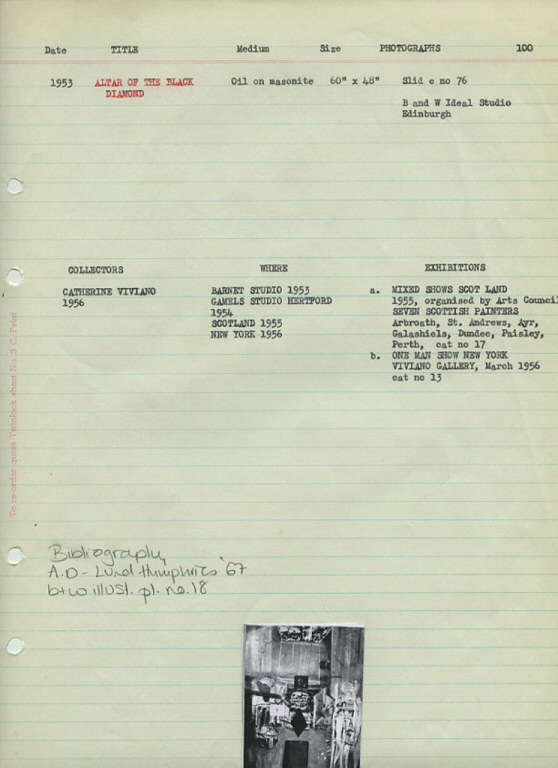 Date TITLE Medium Size PHOTOGRAPHS 100
1953 ALTAR OF THE BLACK Oil on masonite 60" x 48" Slid c no 76
DIAMOND
B and W Ideal Studio
Edinburgh
COLLECTORS WHERE EXHIBITIONS
CATHERINE VIVIANO
1956
BARNET STUDIO 1953
GAMELS STUDIO HERTFORD
1954
SCOTLAND 1955
NEW YORK 1956
a. MIXED SHOWS SCOT LAND
1955, organised by Arts Council
SEVEN SCOTTISH PAINTERS
Arbroath, St. Andrews, Ayr,
Galashiels, Dundee, Paisley,
Perth, cat no 17
b. ONE MAN SHOW NEW YORK
VIVIANO GALLERY, March 1956
cat no 13
To re-order quote Twinlock sheet No. 3 C. Feint
Bibliography
A.D - Lund Humphries '67
b+w illust. pl. no. 18